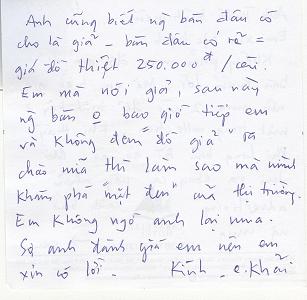 Anh cũng biết ng̀ bán đâu có
cho là giả – bán đâu có rẻ =
giá đồ thiệt 250.000đ/cái.
Em mà nói giả, sau này
ng̀ bán o bao giờ tiếp em
và không đem "đồ giả" ra
chào nữa thì làm sao mà mình
khám phá "mặt đen" của thị trường.
Em không ngờ anh lại mua.
Sợ anh đánh giá em nên em
xin có lời. Kính. e. Khải